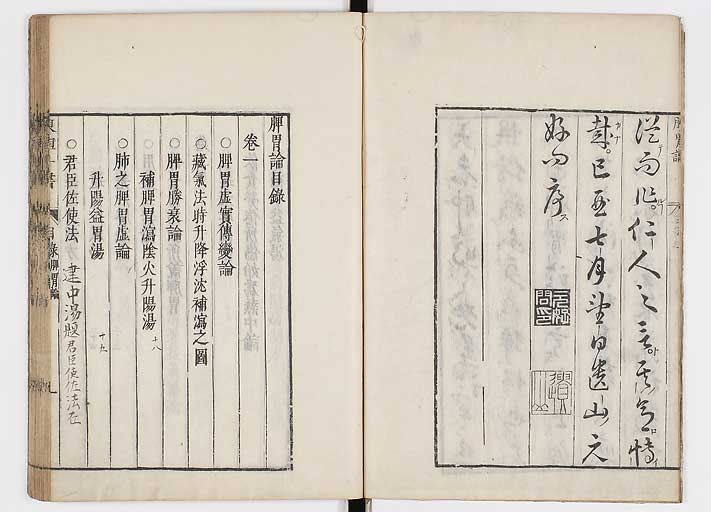 從而 仁人之言其意博
哉己酉七月望日遺山元
好問序
脾胃論目錄
卷一
○脾胃虛實傳變論
○藏氣法時升降浮沈補瀉之圖
○脾胃勝衰論
○補脾胃瀉陰火升陽湯 十八
○肺之脾胃虛論
升陽益胃湯 十九
○君臣佐使法 建中湯題君臣使佐法在
目錄 脾胃論